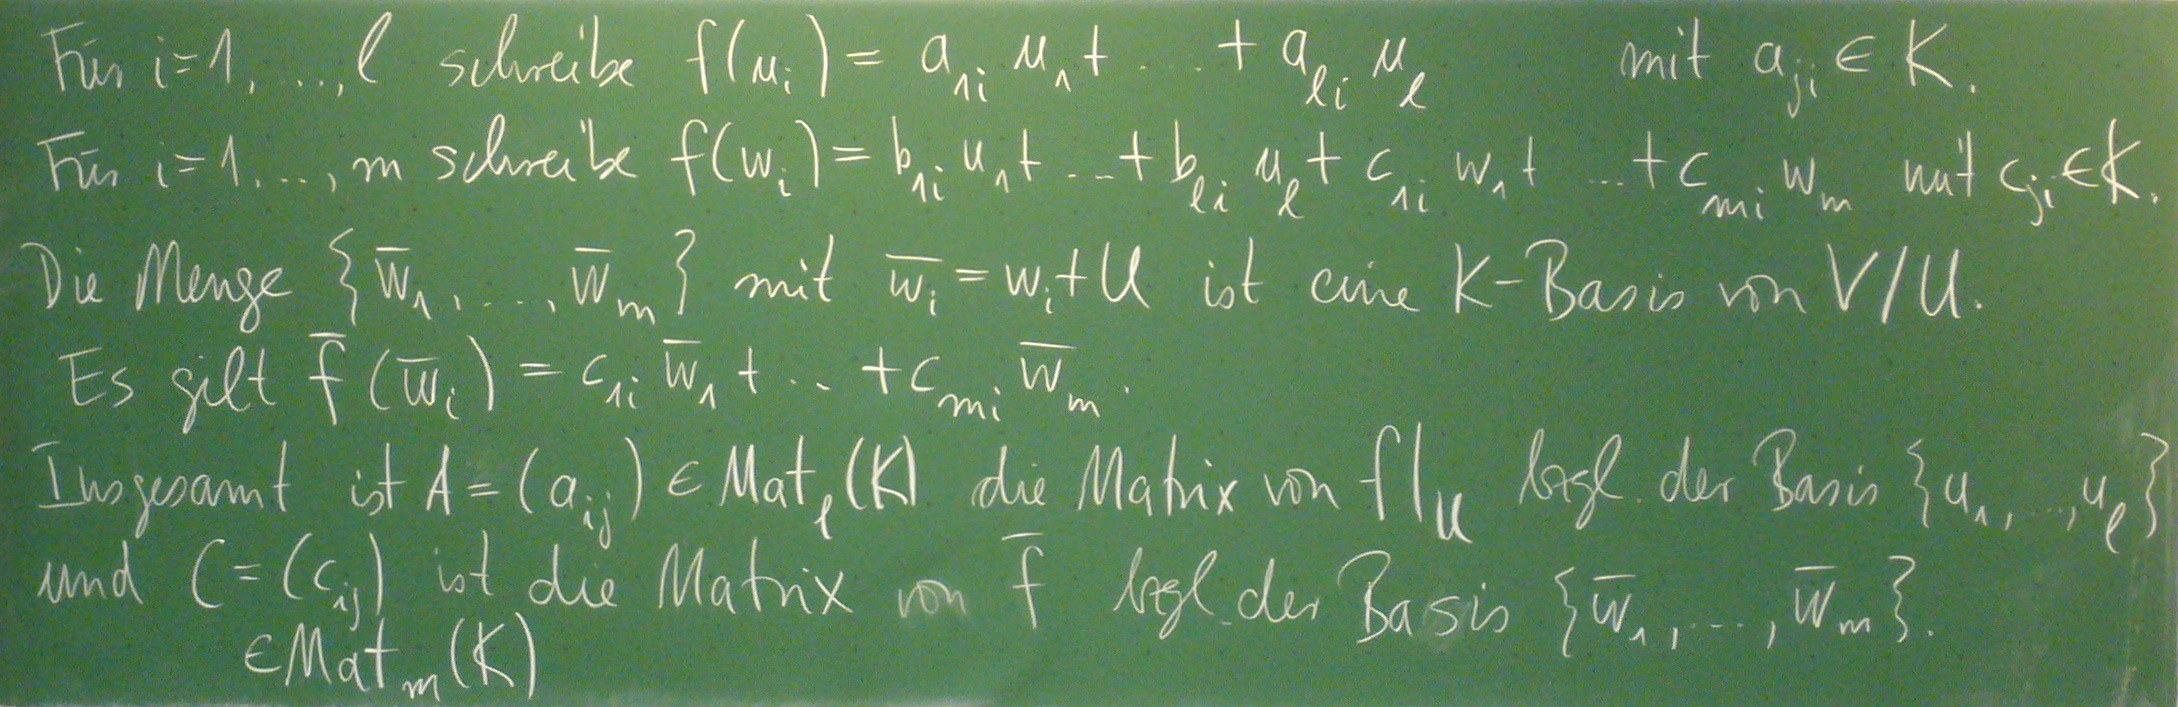 Für i=1, ..., l schreibe f(u_i) = a_{1i} u_1 + ... + a_{li} u_l mit a_{ji} ∈ K.
Für i=1, ..., m schreibe f(w_i) = b_{1i} u_1 + ... + b_{li} u_l + c_{1i} w_1 + ... + c_{mi} w_m mit c_{ji} ∈ K.
Die Menge {w̄_1, ..., w̄_m} mit w̄_i = w_i + U ist eine K-Basis von V/U.
Es gilt f̄(w̄_i) = c_{1i} w̄_1 + .. + c_{mi} w̄_m.
Insgesamt ist A = (a_{ij}) ∈ Mat_l(K) die Matrix von f|_U bzgl. der Basis {u_1, ..., u_l}
und C = (c_{ij}) ist die Matrix von f̄ bzgl. der Basis {w̄_1, ..., w̄_m}.
∈ Mat_m(K)